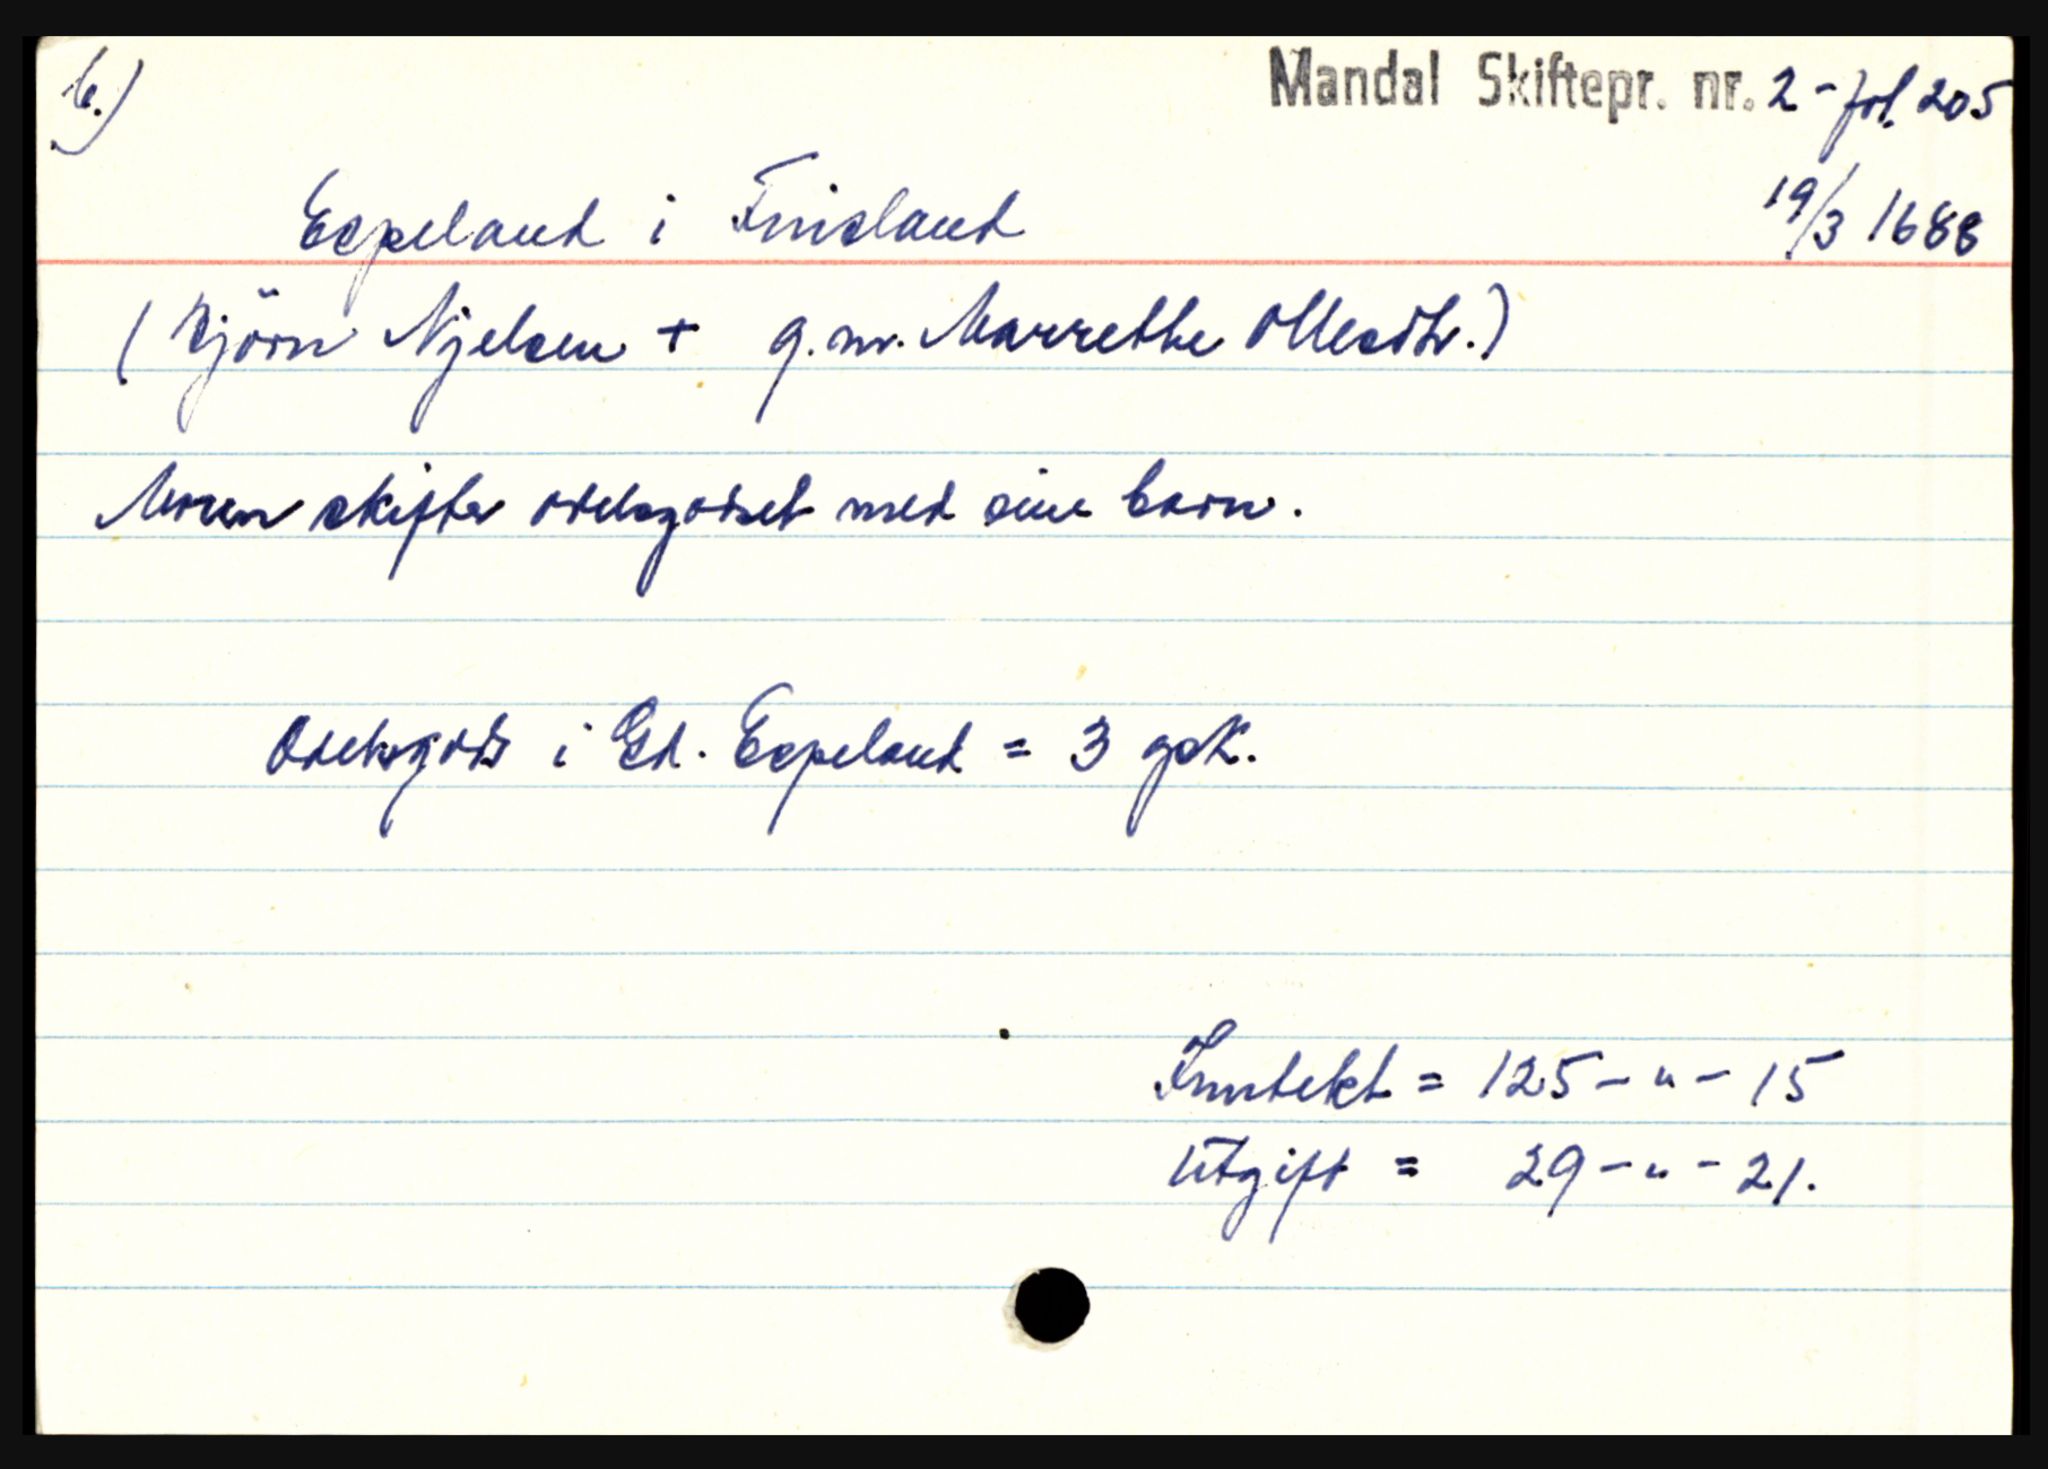 b.)
Mandal Skiftepr. nr. 2 - fol. 205
19/3 1688
Espeland i Finsland
(Björn Njelsen + g.m. Marrethe Ollesdtr.)
Moren skifter odelsgodset med sine barn.
Odelsgods i Gd. Espeland = 3 gsk.
Inntekt = 125 - " - 15
Utgift = 29 - " - 21.